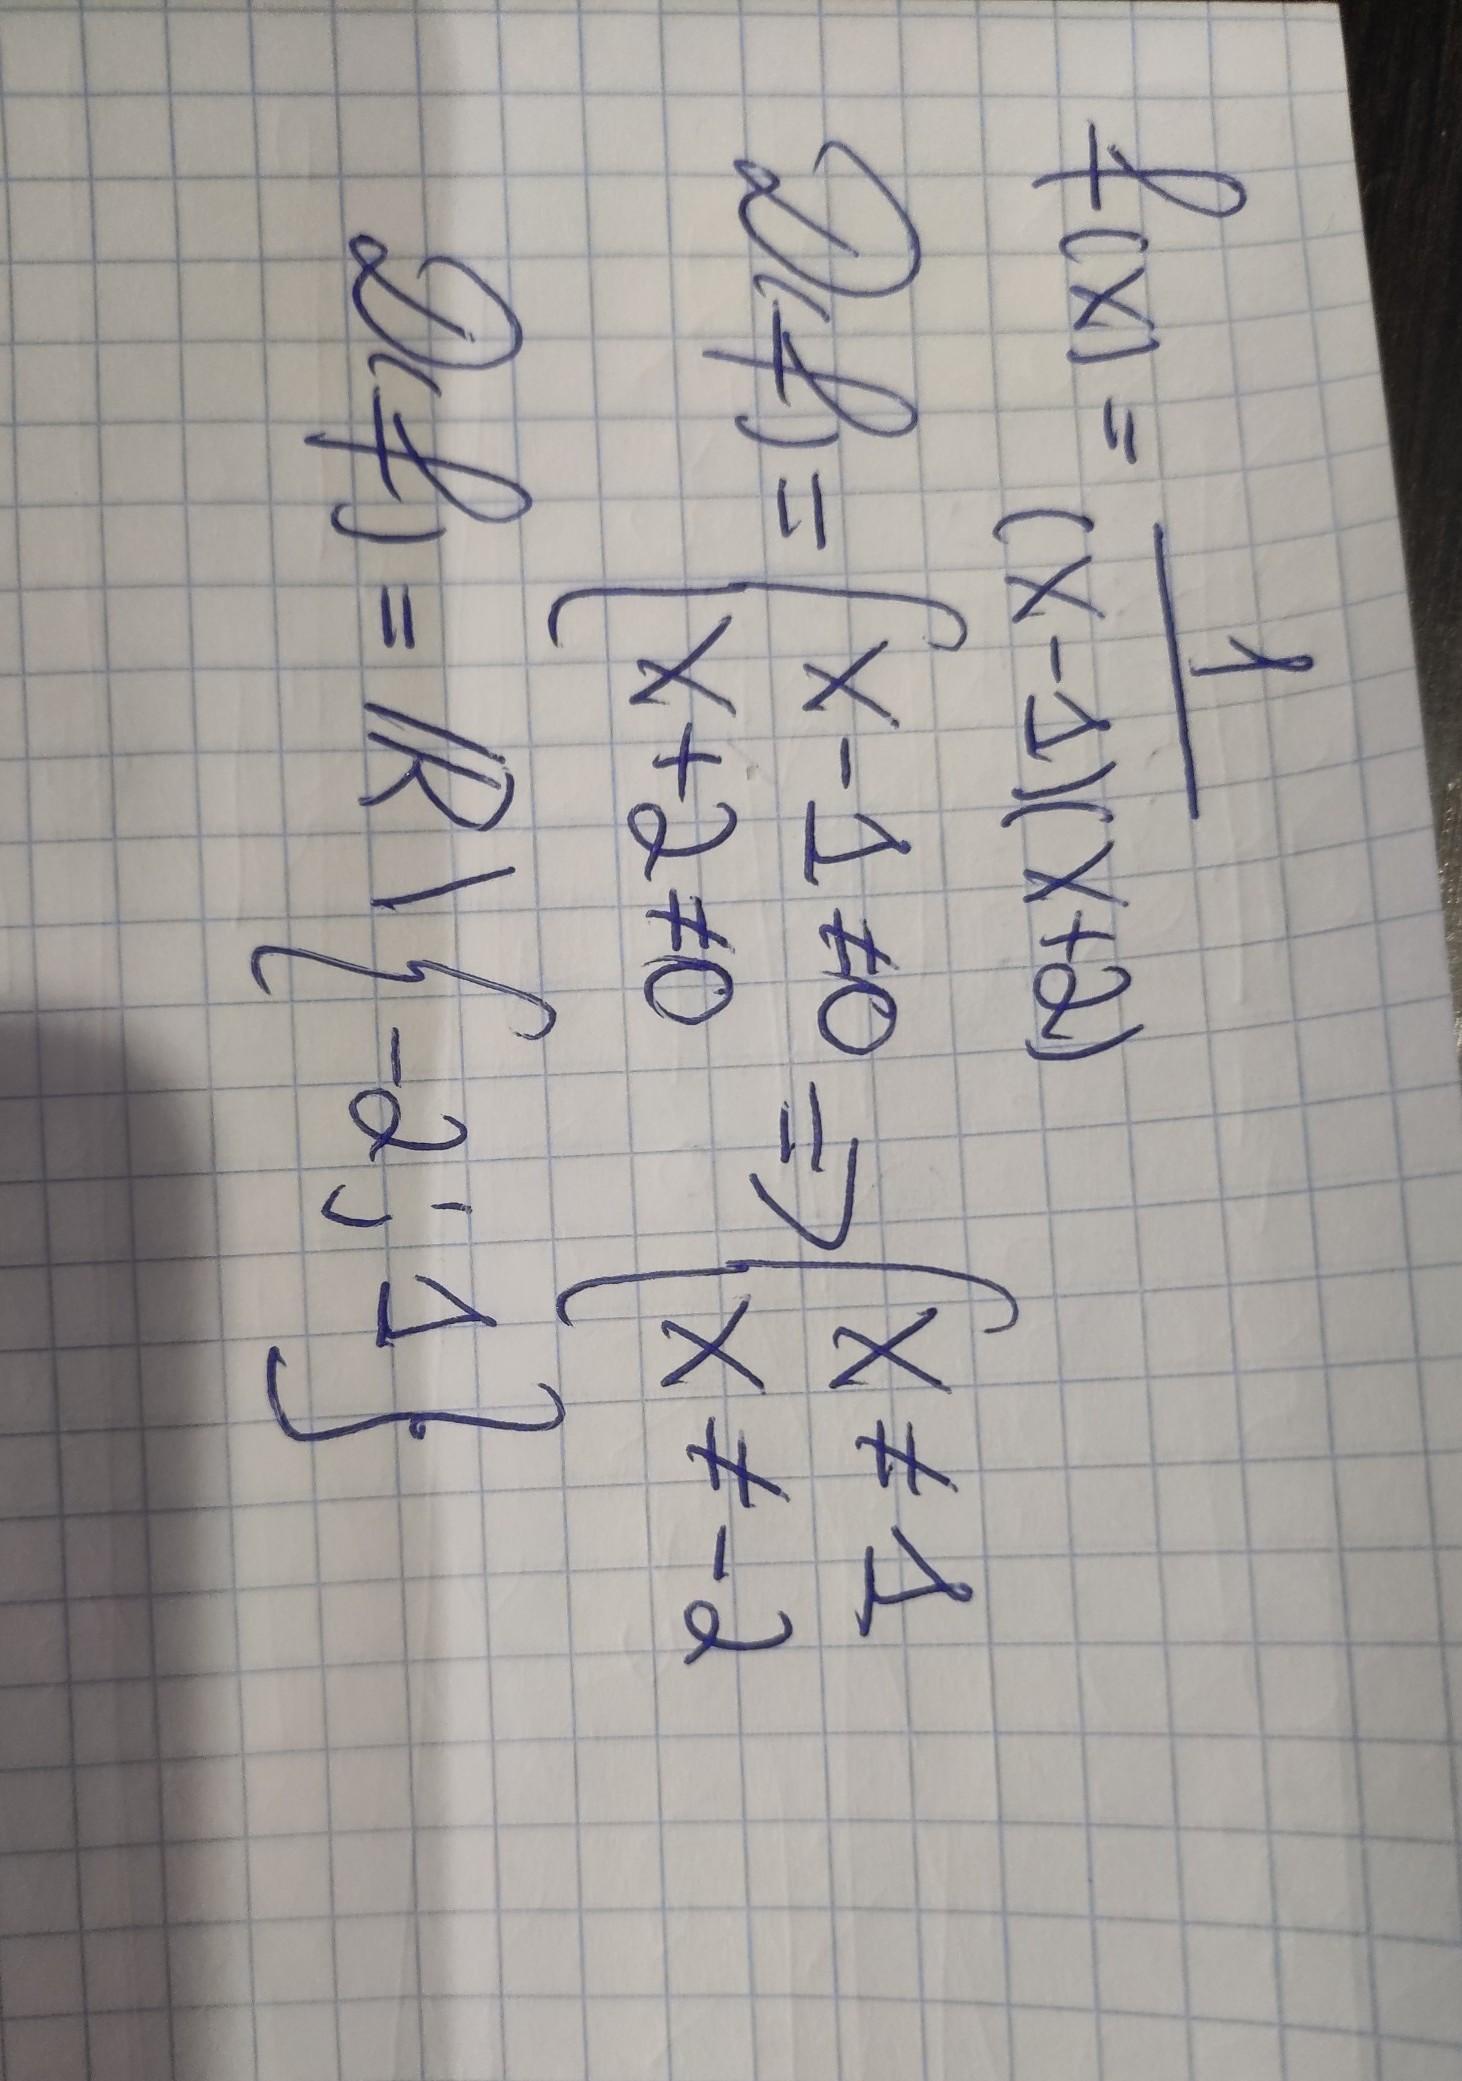 f(x) = 1/((x-1)(x+2))
D(f) = { x-1≠0 ⇒ { x ≠ 1
x+2≠0 x ≠ -2
D(f) = ℝ \ {-2; 1}